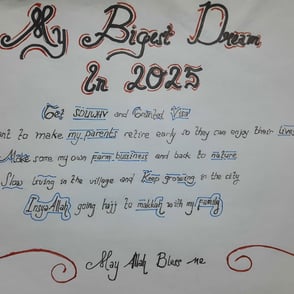 My Bigest Dream
In 2025
Get and Visa
ant to make my parents retire early so they can enjoy their lives
Make some my own farm bussiness and back to nature
Slow living in the village and Keep growing in the city
InsyaAllah going hajj to makkah with my family
May Allah Bless me